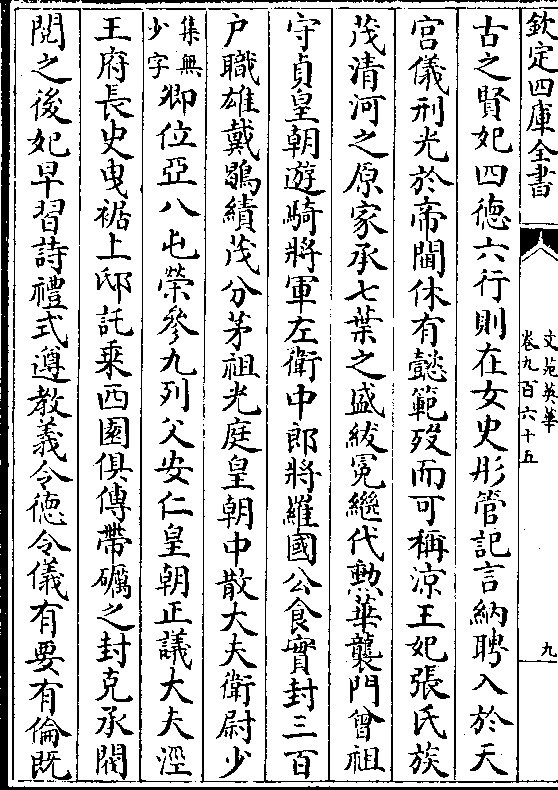 欽定四庫全書
文苑英華
卷九百六十五
九
古之賢妃四德六行則在女史彤管記言納聘入於天
宫儀刑光於帝閫休有懿範歿而可稱涼王妃張氏族
茂清河之原家承七葉之盛紱冕繼代勲華襲門曾祖
守貞皇朝遊騎將軍左衛中郎將羅國公食實封三百
户職雄戴鶡績茂分茅祖光庭皇朝中散大夫衛尉少
集無
少字
卿位亞八屯榮參九列父安仁皇朝正議大夫涇
王府長史曳裾上邸託乗西園俱傳帶礪之封克承閥
閱之後妃早習詩禮式遵教義令徳令儀有要有倫既